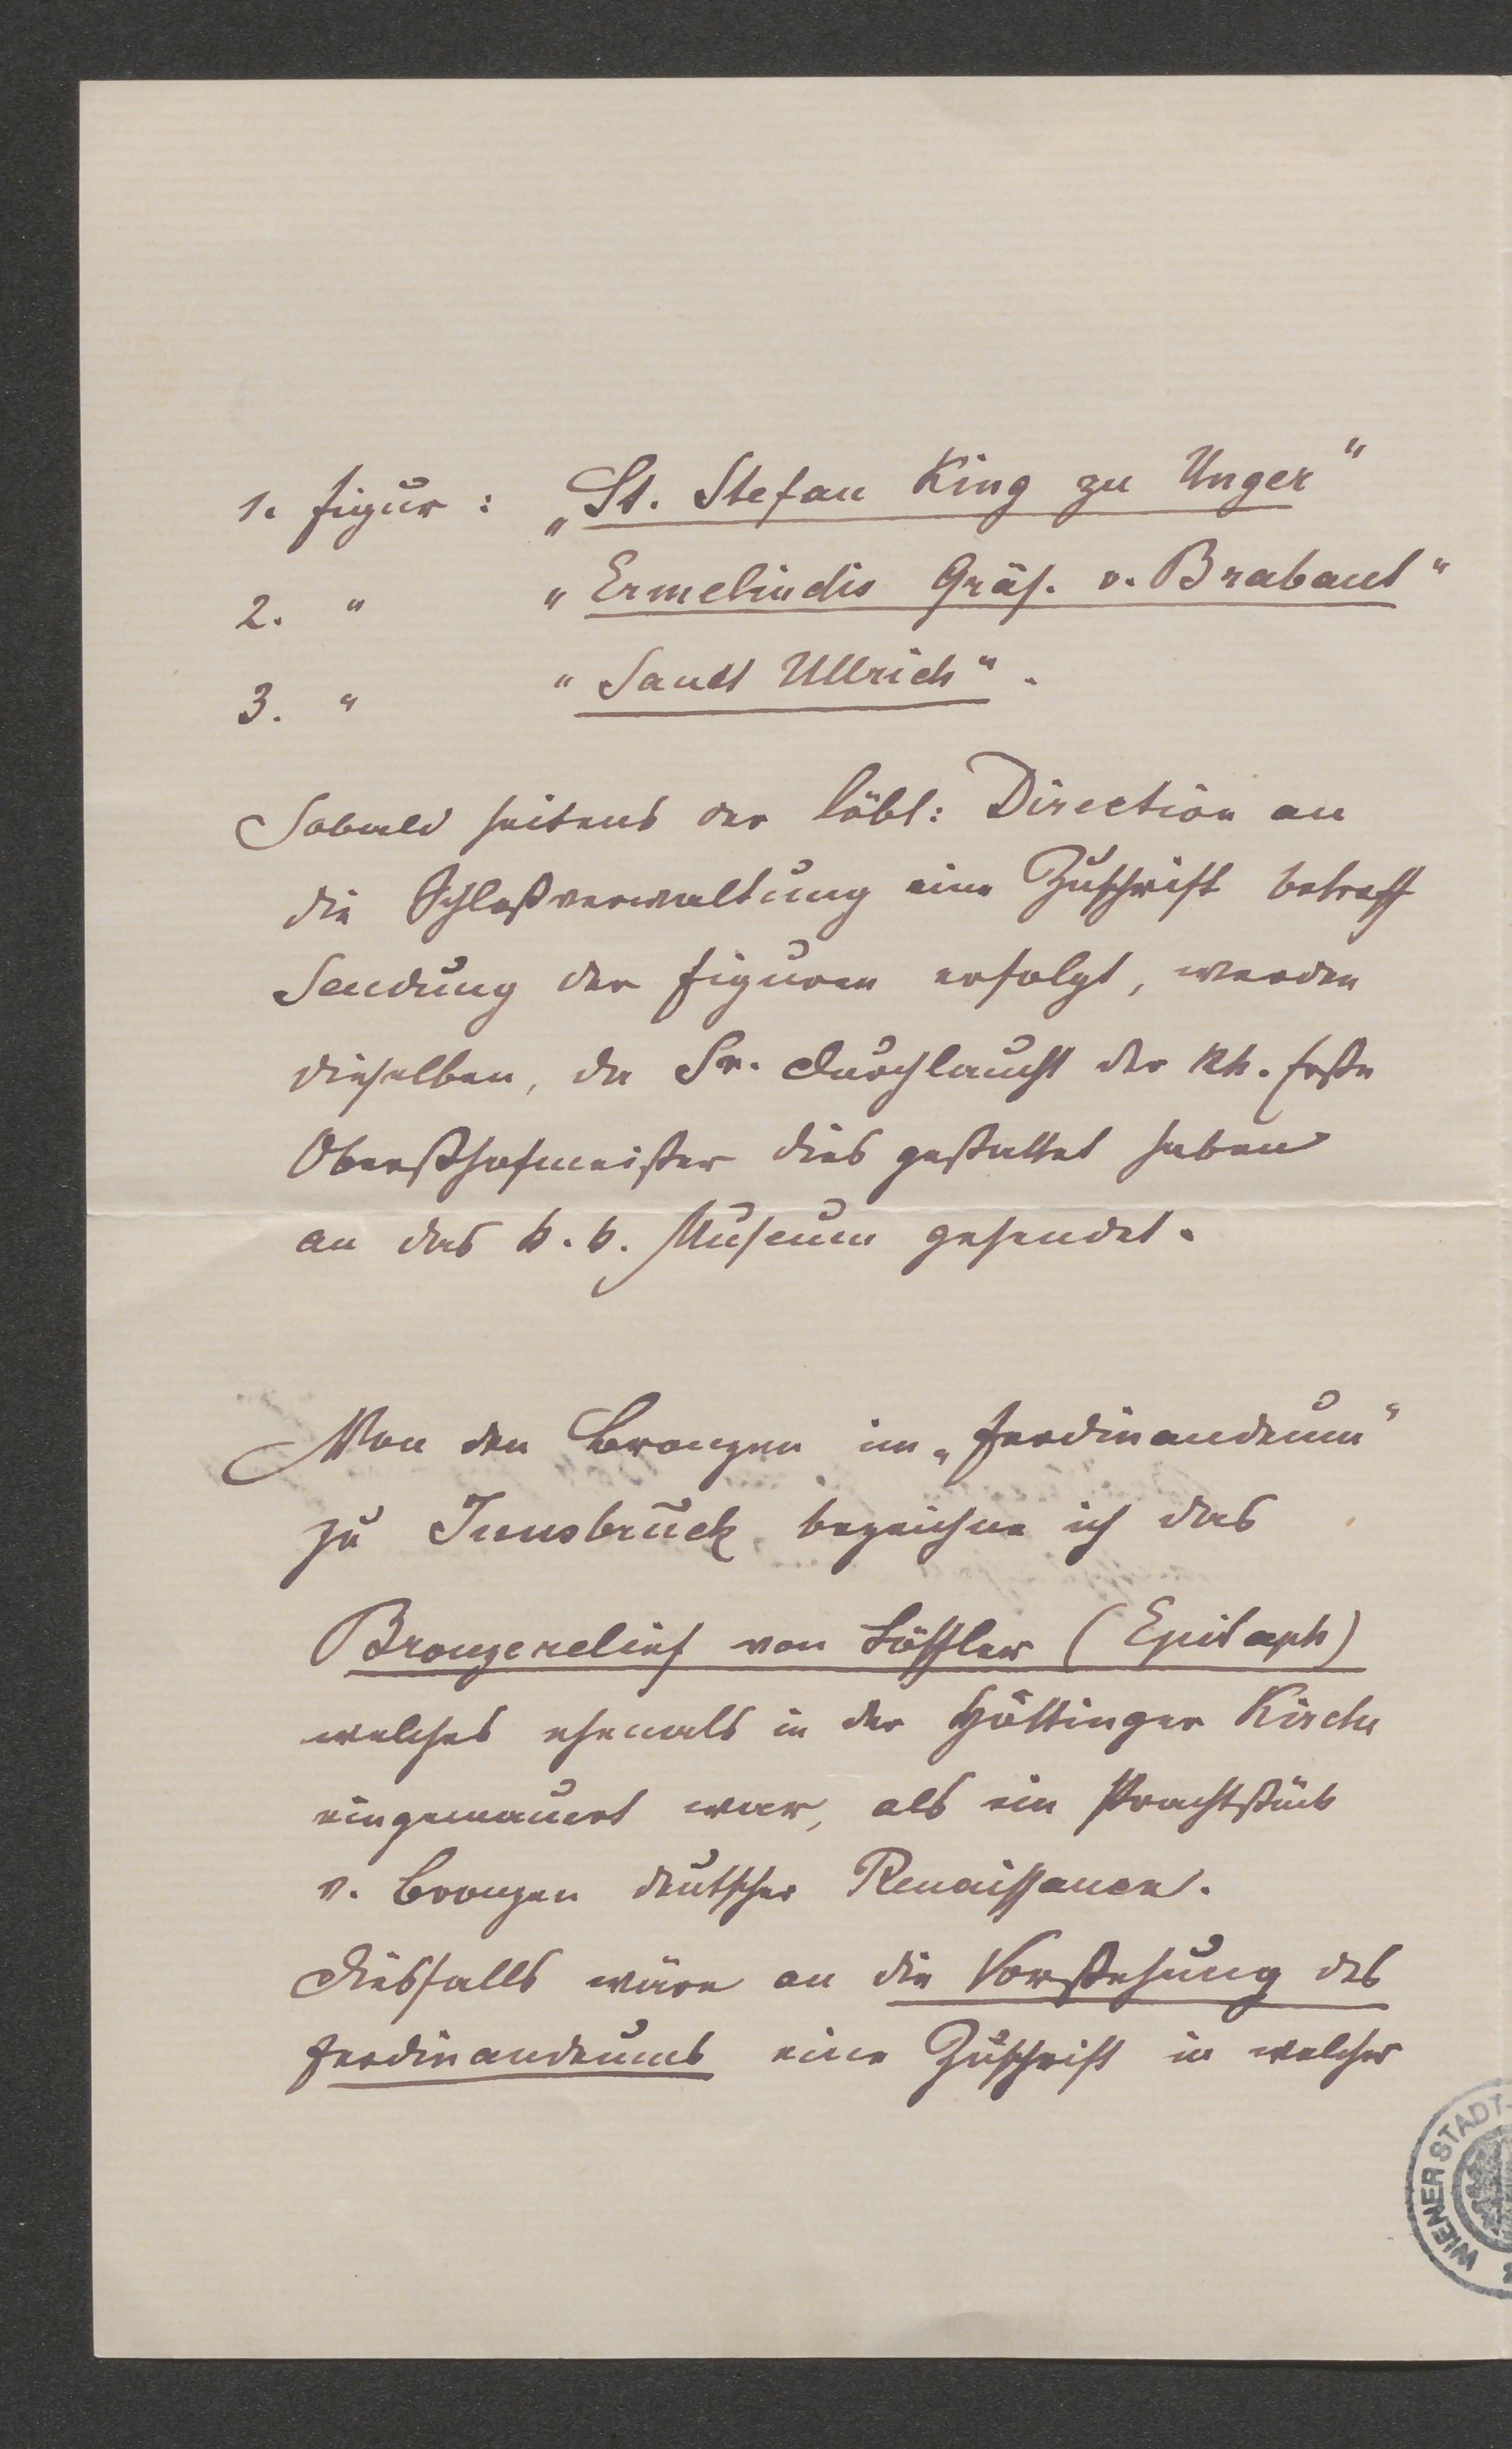 1. Figur: „St. Stefan King zu Unger"
2. " "Ermelindis Gräf. v. Brabant"
3. " "Sanct Ullrich".
Sobald seitens der löbl: Direction an
die Schloßverwaltung eine Zuschrift betreff
Sendung der Figuren erfolgt, werden
dieselben, da Sr. Durchlaucht der Erste
Obersthofmeister dies gestattet haben
an das k. k. Museum gesendet.
Von den Bronzen im „Ferdinandeum"
zu Innsbruck bezeichne ich das
Bronzerelief von Löffler (Epitaph)
welches ehemals in der Höttinger Kirche
eingemauert war, als ein Prachtstück
v. Bronzen deutscher Renaissance.
Diesfalls wäre an die Vorstehung des
Ferdinandeums eine Zuschrift in welcher
WIENER STADT-